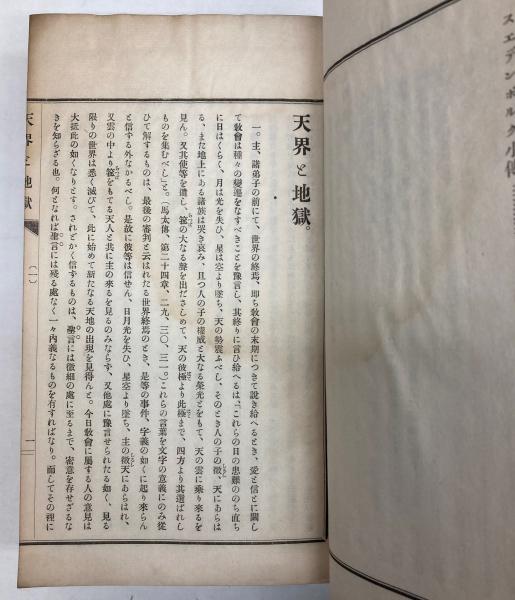 スエデンボルグ小傳
天界と地獄。
一。主、諸弟子の前にて、世界の終焉、即ち敎會の末期につきて說き給へるとき、愛と信とに關し
て敎會は種々の變遷をなすべきことを豫言し、其終りに言ひ給へるは、「これらの日の患難ののち直ち
に日はくらく、月は光を失ひ、星は空より墜ち、天の勢震ふべし、そのとき人の子の徵、天にあらは
る、また地上にある諸族は哭き哀み、且つ人の子の權威と大なる榮光とをもて、天の雲に乘り來るを
見ん。又其使等を遣し、箛の大なる聲を出ださしめて、天の彼極より此極まで、四方より其選ばれし
ものを集むべし」と。(馬太傳、第二十四章、二九、三〇、三一。)これらの言葉を文字の意義にのみ從
ひて解するものは、最後の審判と云はれたる世界終焉のとき、是等の事件、字義の如くに起り來らん
と信ずる外なかるべし。是故に彼等は信ぜん、日月光を失ひ、星空より墜ち、主の徵天にあらはれ、
又雲の中より箛をもてる天人と共に主の來るを見るのみならず、又他處に豫言せられたる如く、見る
限りの世界は悉く滅びて、此に始めて新たなる天地の出現を見得んと。今日敎會に屬する人の意見は
大抵此の如くなりとす。されどかく信ずるものは、聖言には微細の處に至るまで、密意を存せざるな
きを知らざる也。何となれば聖言には殘る處なく一々內義なるものを有すればなり。而してその裡に
天界と地獄
(一)
一